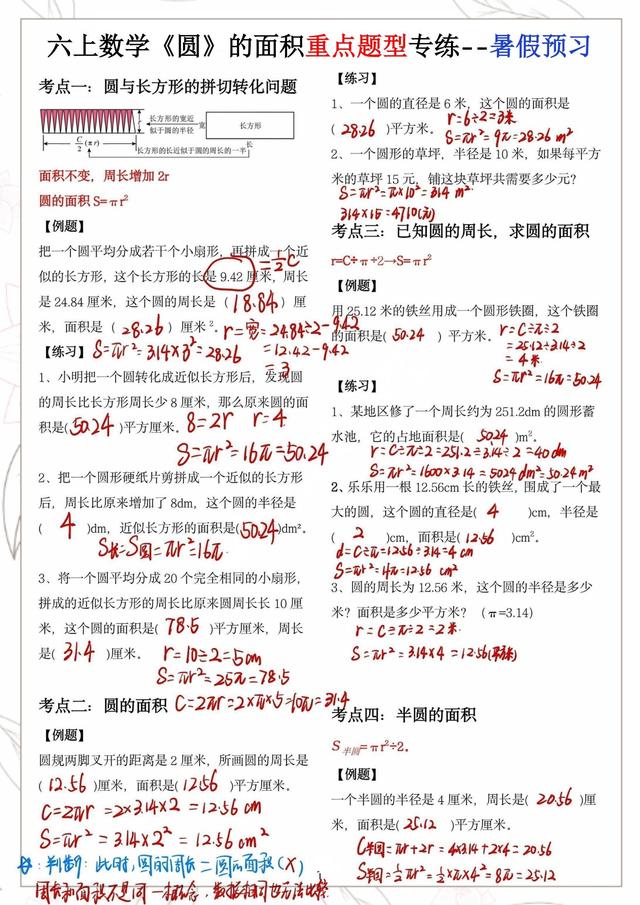 六上数学《圆》的面积重点题型专练--暑假预习
考点一：圆与长方形的拼切转化问题
长方形的宽近
似于圆的半径
宽
长方形
r
C/2(πr)
长
长方形的长近似于圆的周长的一半
面积不变，周长增加2r
圆的面积S=πr²
【例题】
把一个圆平均分成若干个小扇形，再拼成一个近
似的长方形，这个长方形的长是 9.42 厘米，周长
=1/2C
是 24.84 厘米，这个圆的周长是（18.84）厘
米，面积是（28.26）厘米²。
r=宽=24.84÷2-9.42
=12.42-9.42
=3
S=πr²=3.14×3²=28.26
【练习】
1、小明把一个圆转化成近似长方形后，发现圆
的周长比长方形周长少 8 厘米，那么原来圆的面
积是(50.24)平方厘米。
8=2r r=4
S=πr²=16π=50.24
2、把一个圆形硬纸片剪拼成一个近似的长方形
后，周长比原来增加了 8dm，这个圆的半径是
( 4 )dm，近似长方形的面积是(50.24)dm²。
S长=S圆=πr²=16π
3、将一个圆平均分成 20 个完全相同的小扇形，
拼成的近似长方形的周长比原来圆周长长 10 厘
米，这个圆的面积是( 78.5 )平方厘米，周长
是( 31.4 )厘米。
r=10÷2=5cm
S=πr²=25π=78.5
C=2πr=2×π×5=10π=31.4
考点二：圆的面积
【例题】
圆规两脚叉开的距离是 2 厘米，所画圆的周长是
(12.56)厘米，面积是(12.56)平方厘米。
C=2πr=2×3.14×2=12.56cm
S=πr²=3.14×2²=12.56cm²
☆：判断：此时，圆的周长=圆的面积(×)
周长和面积不是同一概念，数据相同也无法比较
【练习】
1、一个圆的直径是 6 米，这个圆的面积是
(28.26)平方米。
r=6÷2=3米
S=πr²=9π=28.26m²
2、一个圆形的草坪，半径是 10 米，如果每平方
米的草坪 15 元，铺这块草坪共需要多少元？
S=πr²=π×10²=314m²
314×15=4710(元)
考点三：已知圆的周长，求圆的面积
r=C÷π÷2→S=πr²
【例题】
用 25.12 米的铁丝用成一个圆形铁圈，这个铁圈
的面积是(50.24)平方米。
r=C÷π÷2
=25.12÷3.14÷2
=4米
S=πr²=16π=50.24
【练习】
1、某地区修了一个周长约为 251.2dm 的圆形蓄
水池，它的占地面积是( 50.24 )m²。
r=C÷π÷2=251.2÷3.14÷2=40dm
S=πr²=1600×3.14=5024dm²=50.24m²
2、乐乐用一根 12.56cm 长的铁丝，围成了一个最
大的圆，这个圆的直径是( 4 )cm，半径是
( 2 )cm，面积是(12.56)cm²。
d=C÷π=12.56÷3.14=4cm
S=πr²=4π=12.56cm²
3、圆的周长为 12.56 米，这个圆的半径是多少
米？面积是多少平方米？（π=3.14）
r=C÷π÷2=2米
S=πr²=3.14×4=12.56(平方米)
考点四：半圆的面积
S半圆=πr²÷2。
【例题】
一个半圆的半径是 4 厘米，周长是( 20.56 )厘
米，面积是( 25.12 )平方厘米。
C半圆=πr+2r=4×3.14+2×4=20.56
S半圆=1/2πr²=1/2×π×4²=8π=25.12